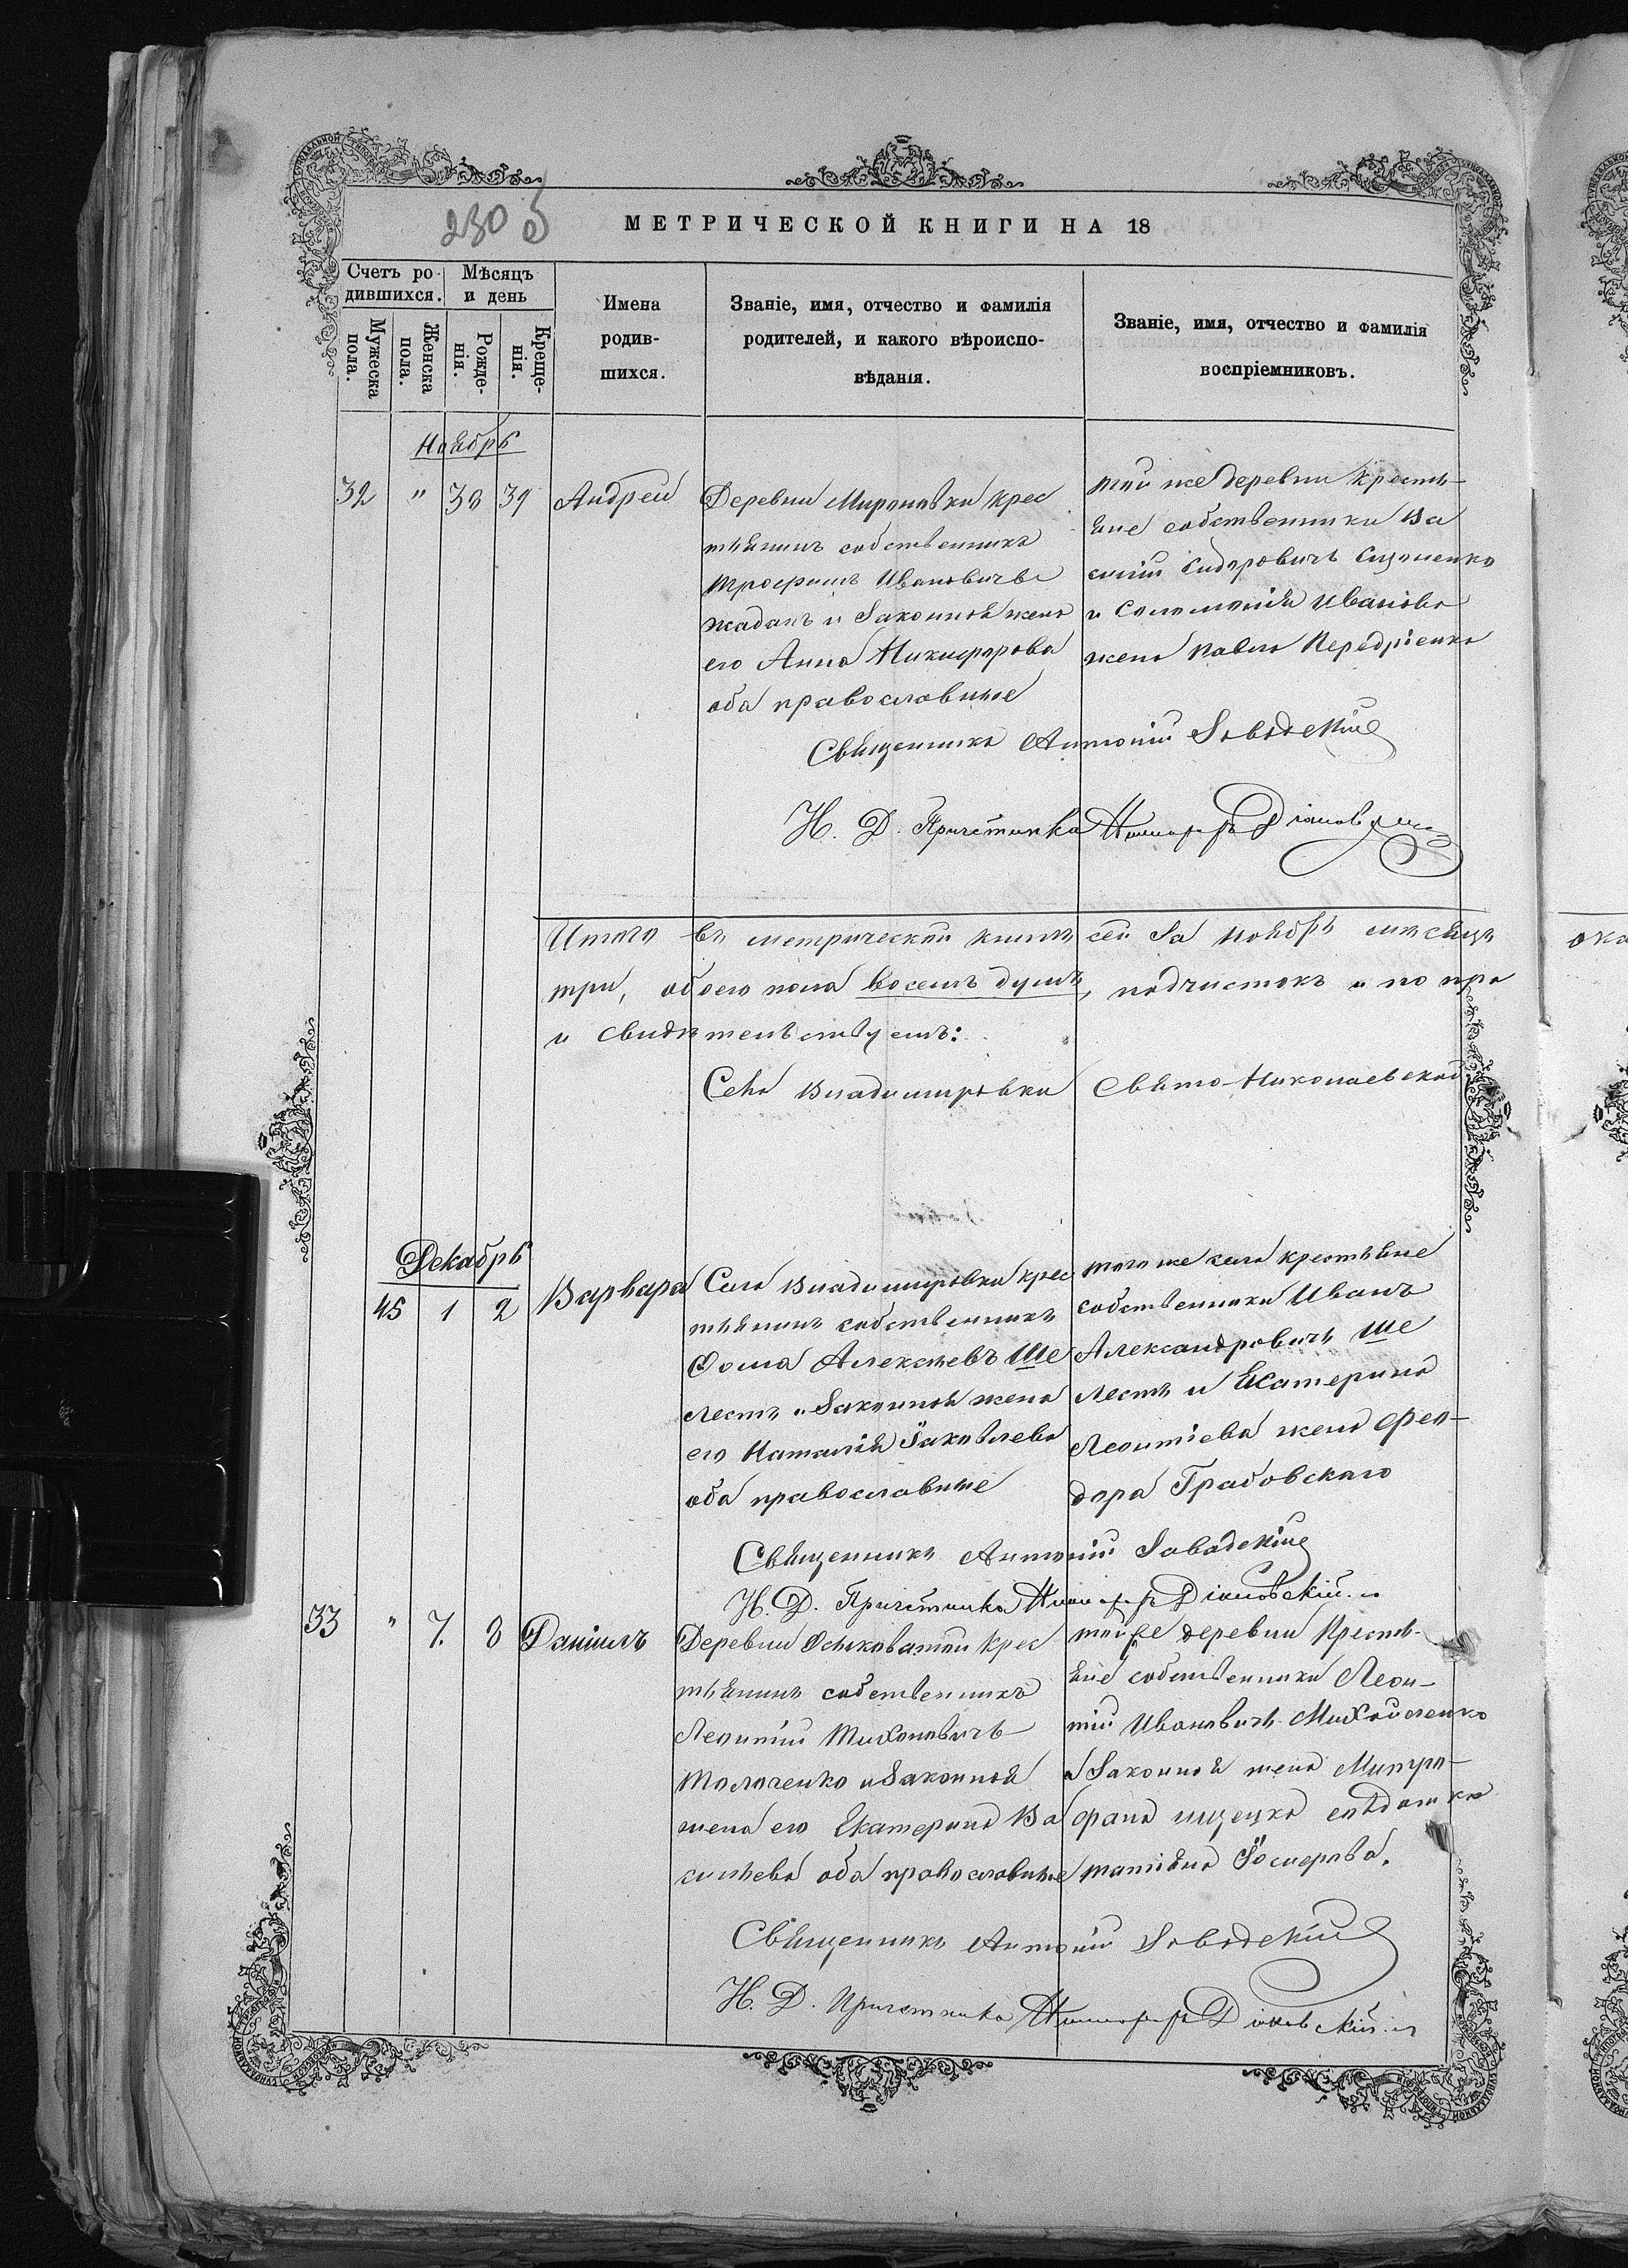 230 об
МЕТРИЧЕСКОЙ КНИГИ НА 18
Счетъ ро-
дившихся.
Мѣсяцъ
и день
Мужеска
пола.
Женска
пола.
Рожде-
нія.
Креще-
нія.
Имена
родив-
шихся.
Званіе, имя, отчество и фамилія
родителей, и какого вѣроиспо-
вѣданія.
Званіе, имя, отчество и фамилія
воспріемниковъ.
Ноябрь
32 " 30 30 Андрей
Деревни Мироновки крес
тьянинъ собственникъ
Трофимъ Ивановичъ
Жаданъ и законной жена
его Анна Никифорова
оба православные
той же деревни кресть-
яне собственники Ва
силій Сидоровичъ Сизоненко
и Соломонія Иванова
жена Павла Передріенка
Священникъ Антоній
Н. Д. Причетника
Итого въ метрической книгѣ сей за ноябрь мѣсяцъ
три, обоего пола восемь душъ, подчистокъ и по пра
и свидѣтельствуемъ:
Села Владимировки Свято-Николаевской
Декабрь
45 1 2 Варвара
Села Владимировки крес
тьянинъ собственникъ
Фома Алексѣевъ Ше
лестъ и законной жена
его Наталія Яковлева
оба православные
того же села крестьяне
собственники Иванъ
Александровичъ Ше
лестъ и Екатерина
Леонтіева жена Фео-
дора Грабовскаго
Священникъ Антоній
Н. Д. Причетника Діановскій
33 " 7. 8 Даніилъ
Деревни Осиковатой крес
тьянинъ собственникъ
Леонтій Тихоновичъ
Толоченко и законной
жена его Екатерина Ва
сильева оба православные
той же деревни кресть-
яне собственники Леон-
тій Ивановичъ Михайленко
и законной жена Митро-
фана
Татіана
Священникъ Антоній
Н. Д. Причетника